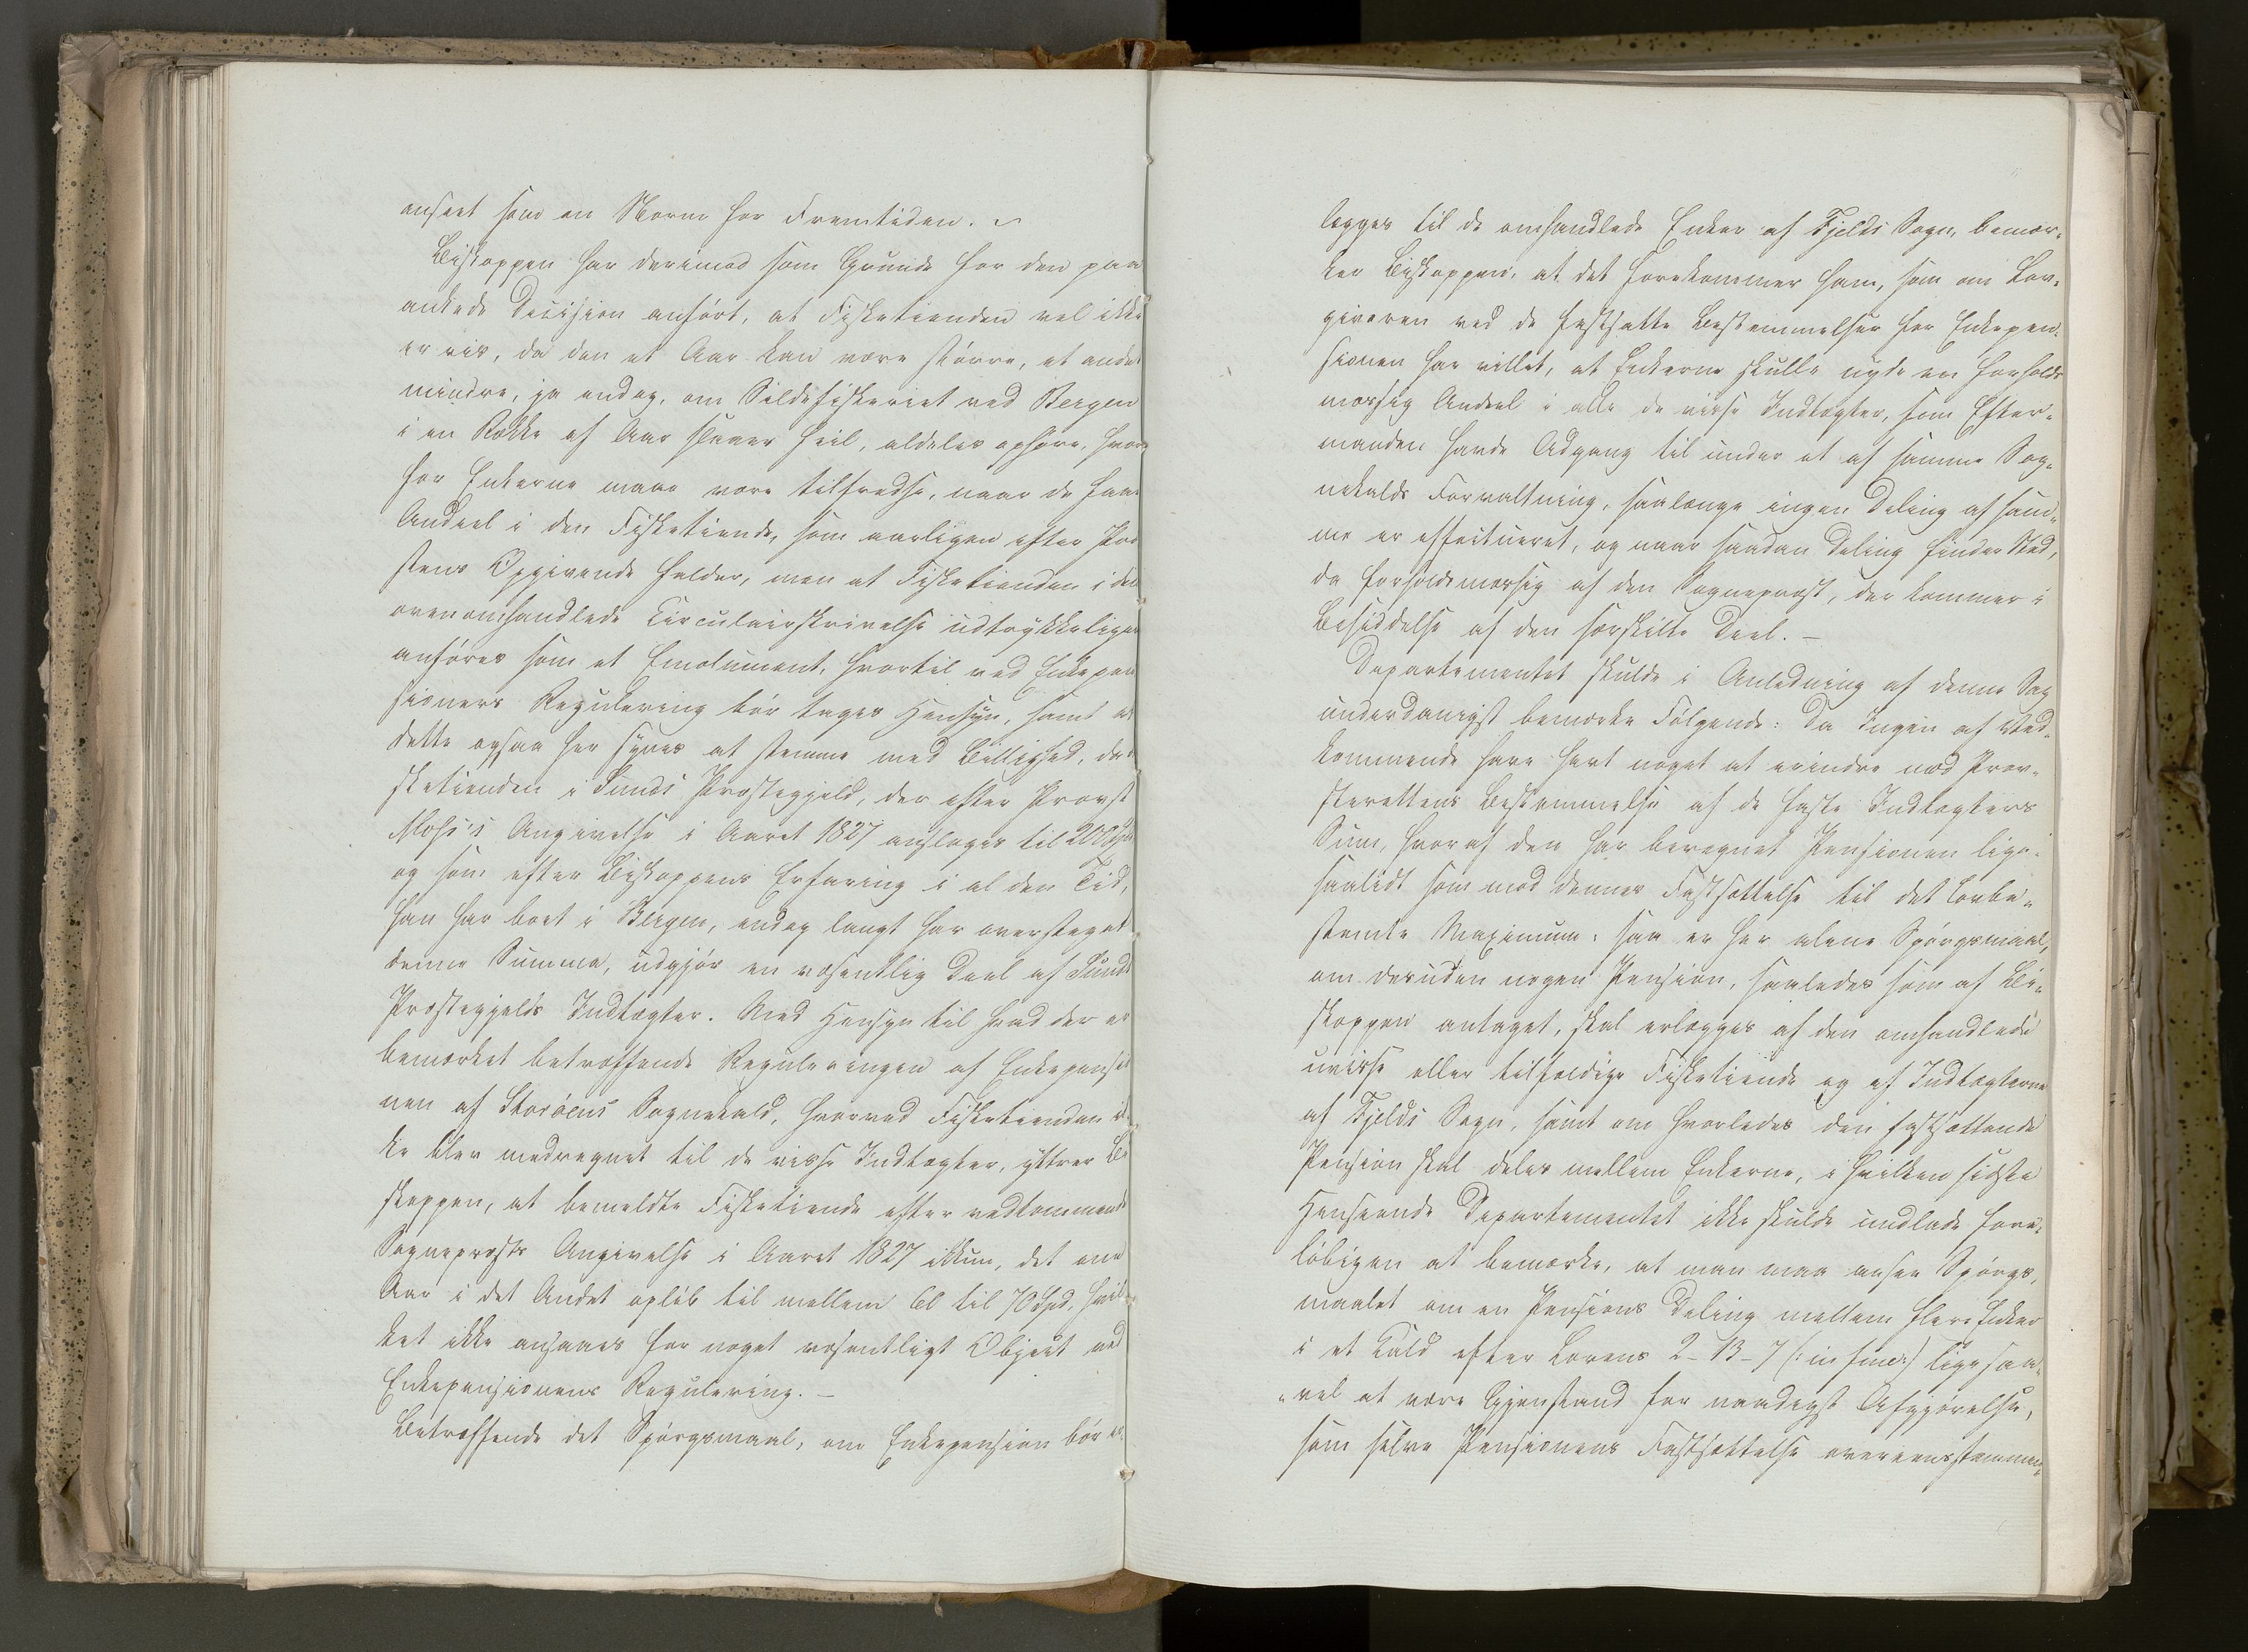 anseet som en Norm for Fremtiden. 
Biskoppen har derimod som Grunde for den paa
ankede Decision anført, at Fisketienden vel ikke
er vis, da den et Aar kan være større, et andet
mindre, ja endog, om Sildefiskeriet ved Bergen
i en Række af Aar slaaer feil, aldeles ophøre, hvor
for Enkerne maae være tilfredse, naar de faae
Andeel i den Fisketiende, som aarligen efter Præ
stens Opgivende falder, men at Fisketienden i det
ovenomhandlede Circulairskrivelse udtrykkeligen
anføres som et Emolument, hvortil ved Enkepen
sioners Regulering bør tages Hensyn, samt at
dette ogsaa her synes at stemme med Billighed, da
sketienden i Sunds Præstegjeld, der efter Provst
Angivelse i Aaret 1827 ansloges til 200 Spd
og som efter Biskoppens Erfaring i al den Tid,
han har boet i Bergen, endog langt har oversteget
denne Summa, udgjør en væsentlig Deel af Sunds
Præstegjelds Indtægter. Med Hensyn til hvad der er
bemærket betræffende Reguleringen af Enkepensio
nen af Storøens Sognekald, hvorved Fisketienden ik
ke blev medregnet til de visse Indtægter, yttrer Bi
skoppen, at bemeldte Fisketiende efter vedkommende
Sognepræsts Angivelse i Aaret 1827 ikkun, det ene
Aar i det Andet opløb til mellem 60 til 70 Spd, hvil
ket ikke ansaaes for noget væsentligt Object ved
Enkepensionens Regulering. –
Betræffende det Spørgsmaal, om Enkepension bør er
lægges til de omhandlede Enker af Fjelds Sogn, bemær-
ker Biskoppen, at det forekommer ham, som om Lov-
giveren ved de fastsatte Bestemmelser for Enkepen-
sionen har villet, at Enkerne skulle nyde en forholds
mæssig Andeel i alle de visse Indtægter, som Efter-
manden havde Adgang til under et af samme Sog-
nekalds Forvaltning, saalænge ingen Deling af sam-
me er effectueret, og naar saadan Deling finder Sted,
da forholdsmæssig af den Sognepræst, der kommer i
Besiddelse af den særskilte Deel. –
Departementet skulde i Anledning af denne Sag
underdanigst bemærke Følgende: Da Ingen af Ved-
kommende have havt noget at erindre mod Prov-
sterettens Bestemmelse af de faste Indtægters
Sum, hvoraf den har beregnet Pensionen lige-
saalidt som mod dennes Fastsættelse til det lovbe-
stemte Maximum: saa er her alene Spørgsmaal,
om desuden nogen Pension, saaledes som af Bi-
skoppen antaget, skal erlægges af den omhandlede
uvisse eller tilfældige Fisketiende og af Indtægterne
af Fjelds Sogn, samt om hvorledes den fastsættende
Pension skal deles mellem Enkerne, i hvilken sidste
Henseende Departementet ikke skulde undlade fore-
løbigen at bemærke, at man maa ansee Spørgs-
maalet om en Pensions Deling mellem flere Enker
i et Kald efter Lovens 2-13-7 (: in fine:) ligesaa-
vel at være Gjenstand for naadigst Afgjørelse,
som selve Pensionens Fastsættelse overeensstemmen-